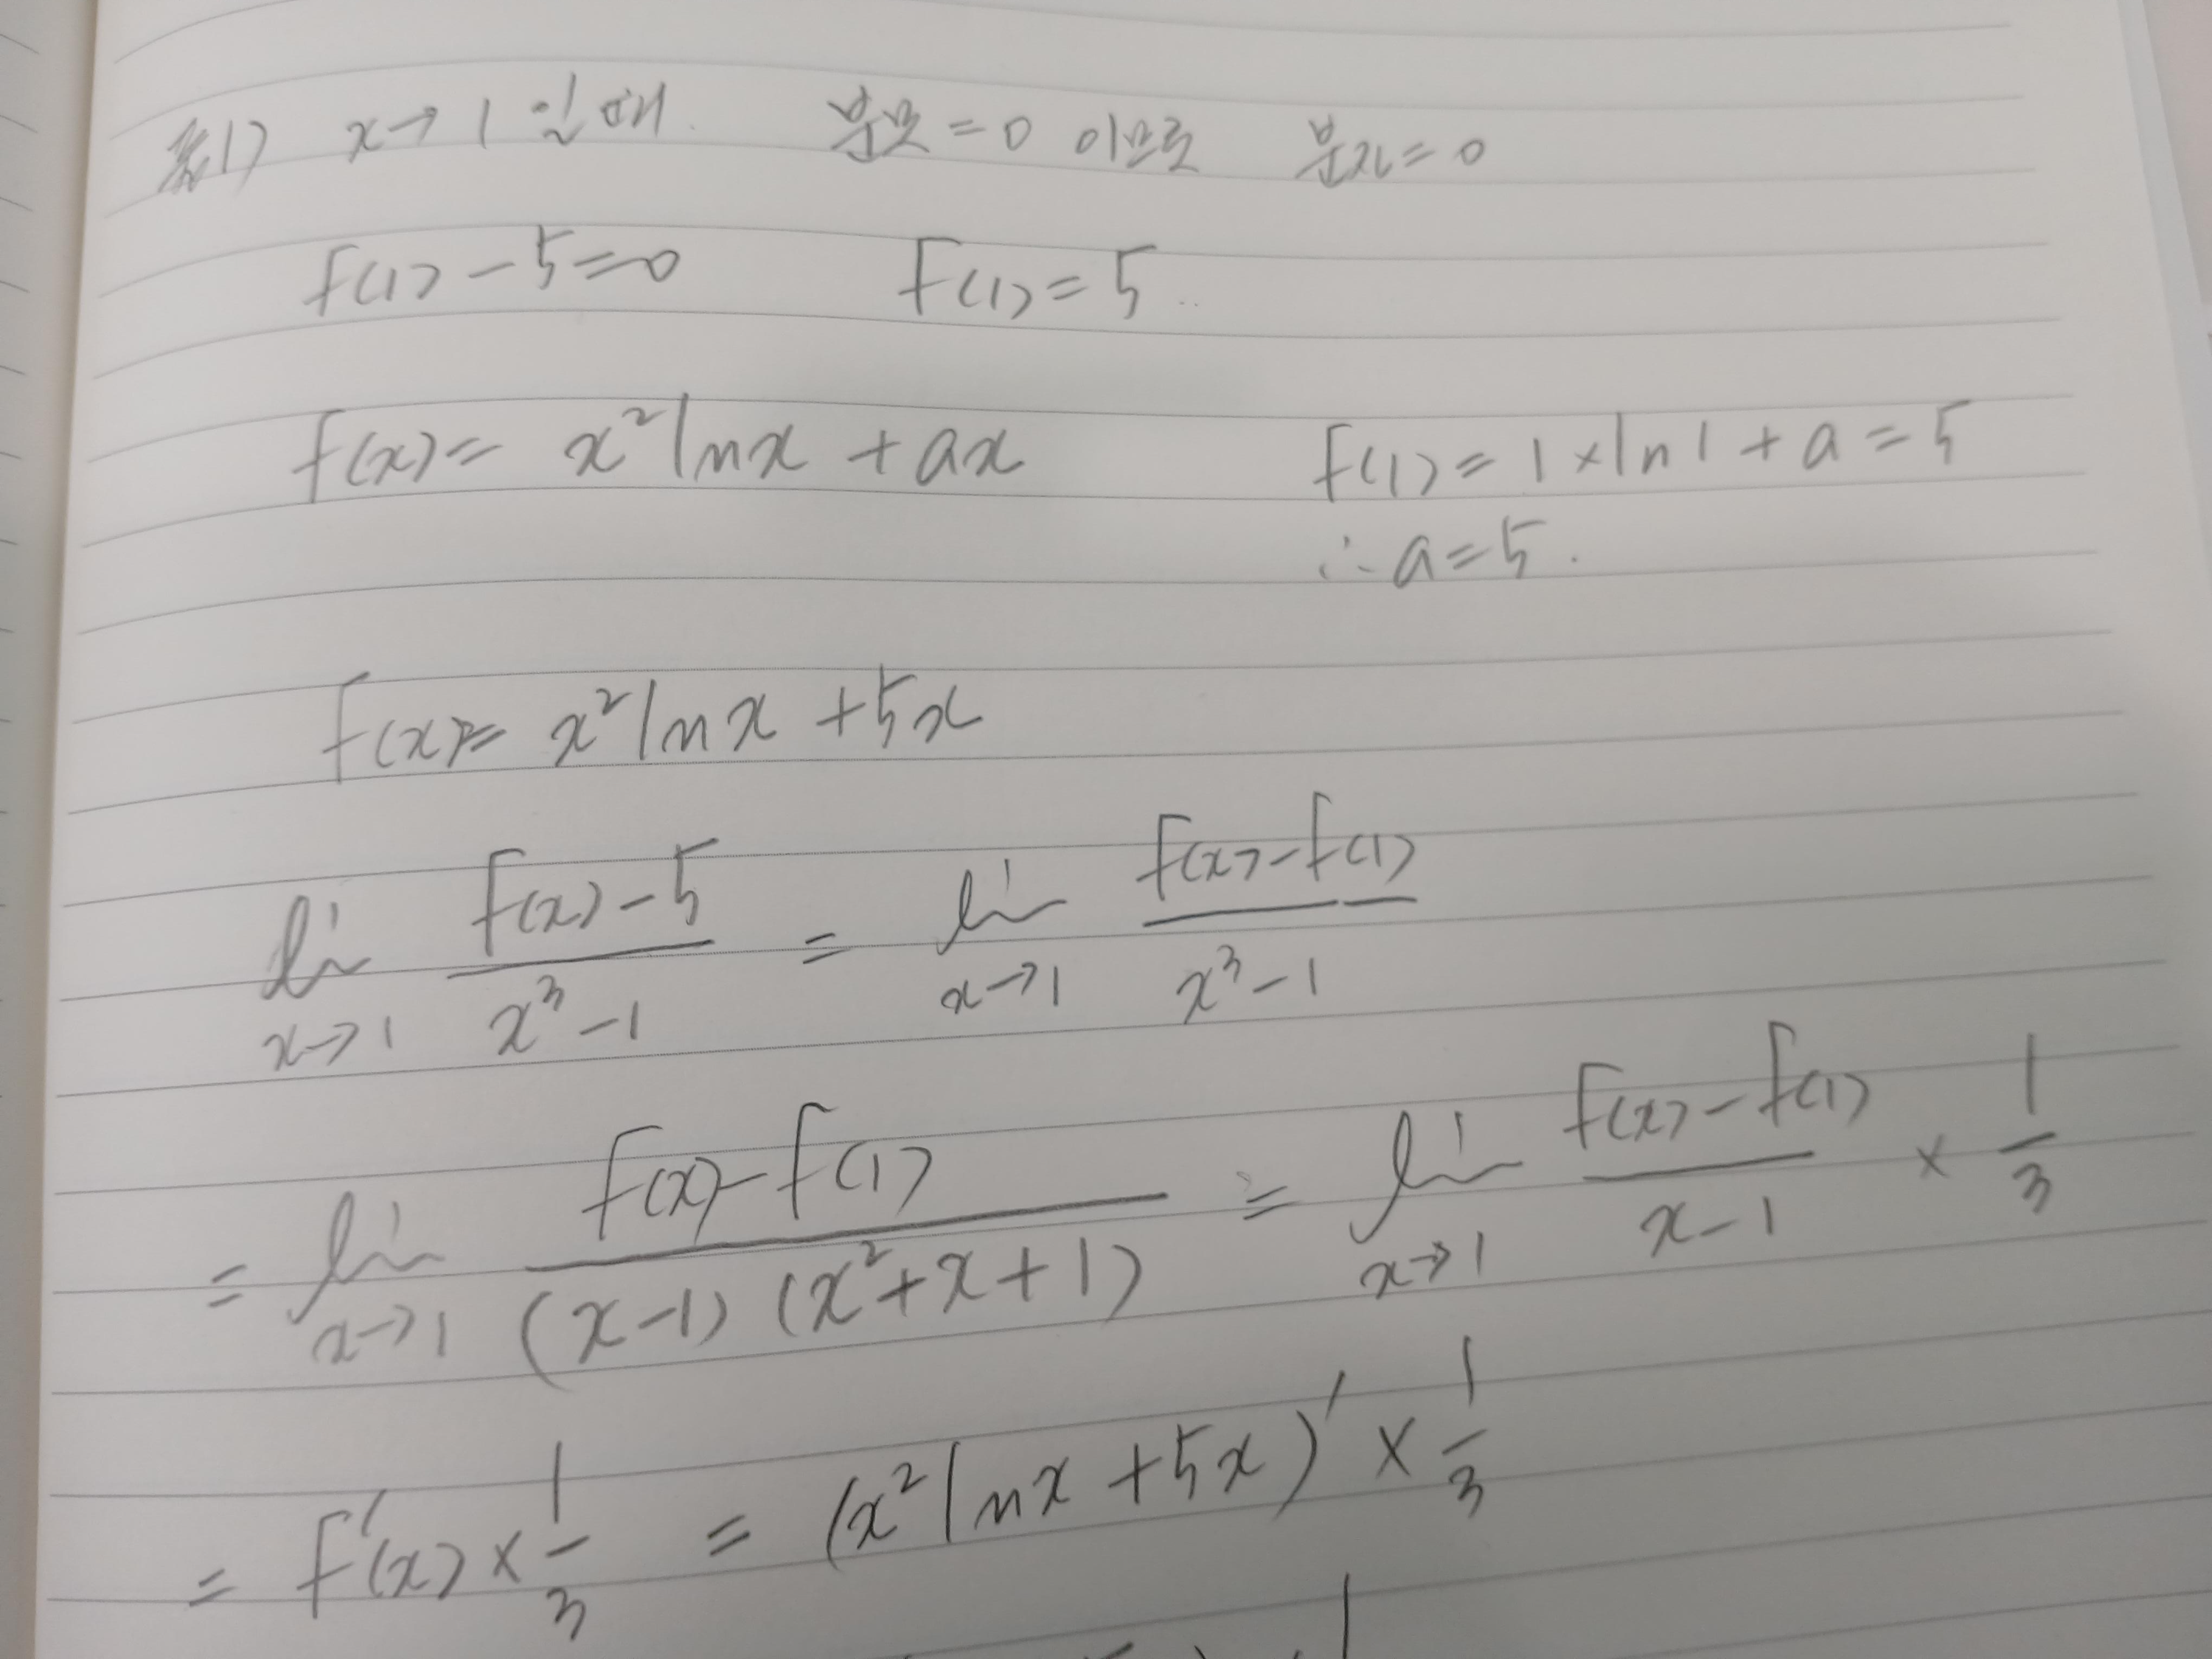 1) x→1 일때. 분모=0 이므로 분자=0
f(1)-5=0 f(1)=5..
f(x)= x²lnx +ax f(1)=1×ln1+a=5
∴a=5.
f(x)= x²lnx +5x
li x→1 f(x)-5 / x³-1 = li x→1 f(x)-f(1) / x³-1
= li x→1 f(x)-f(1) / (x-1)(x²+x+1) = li x→1 f(x)-f(1) / x-1 × 1/3
= f'(x)×1/3 = (x²lnx+5x)' × 1/3